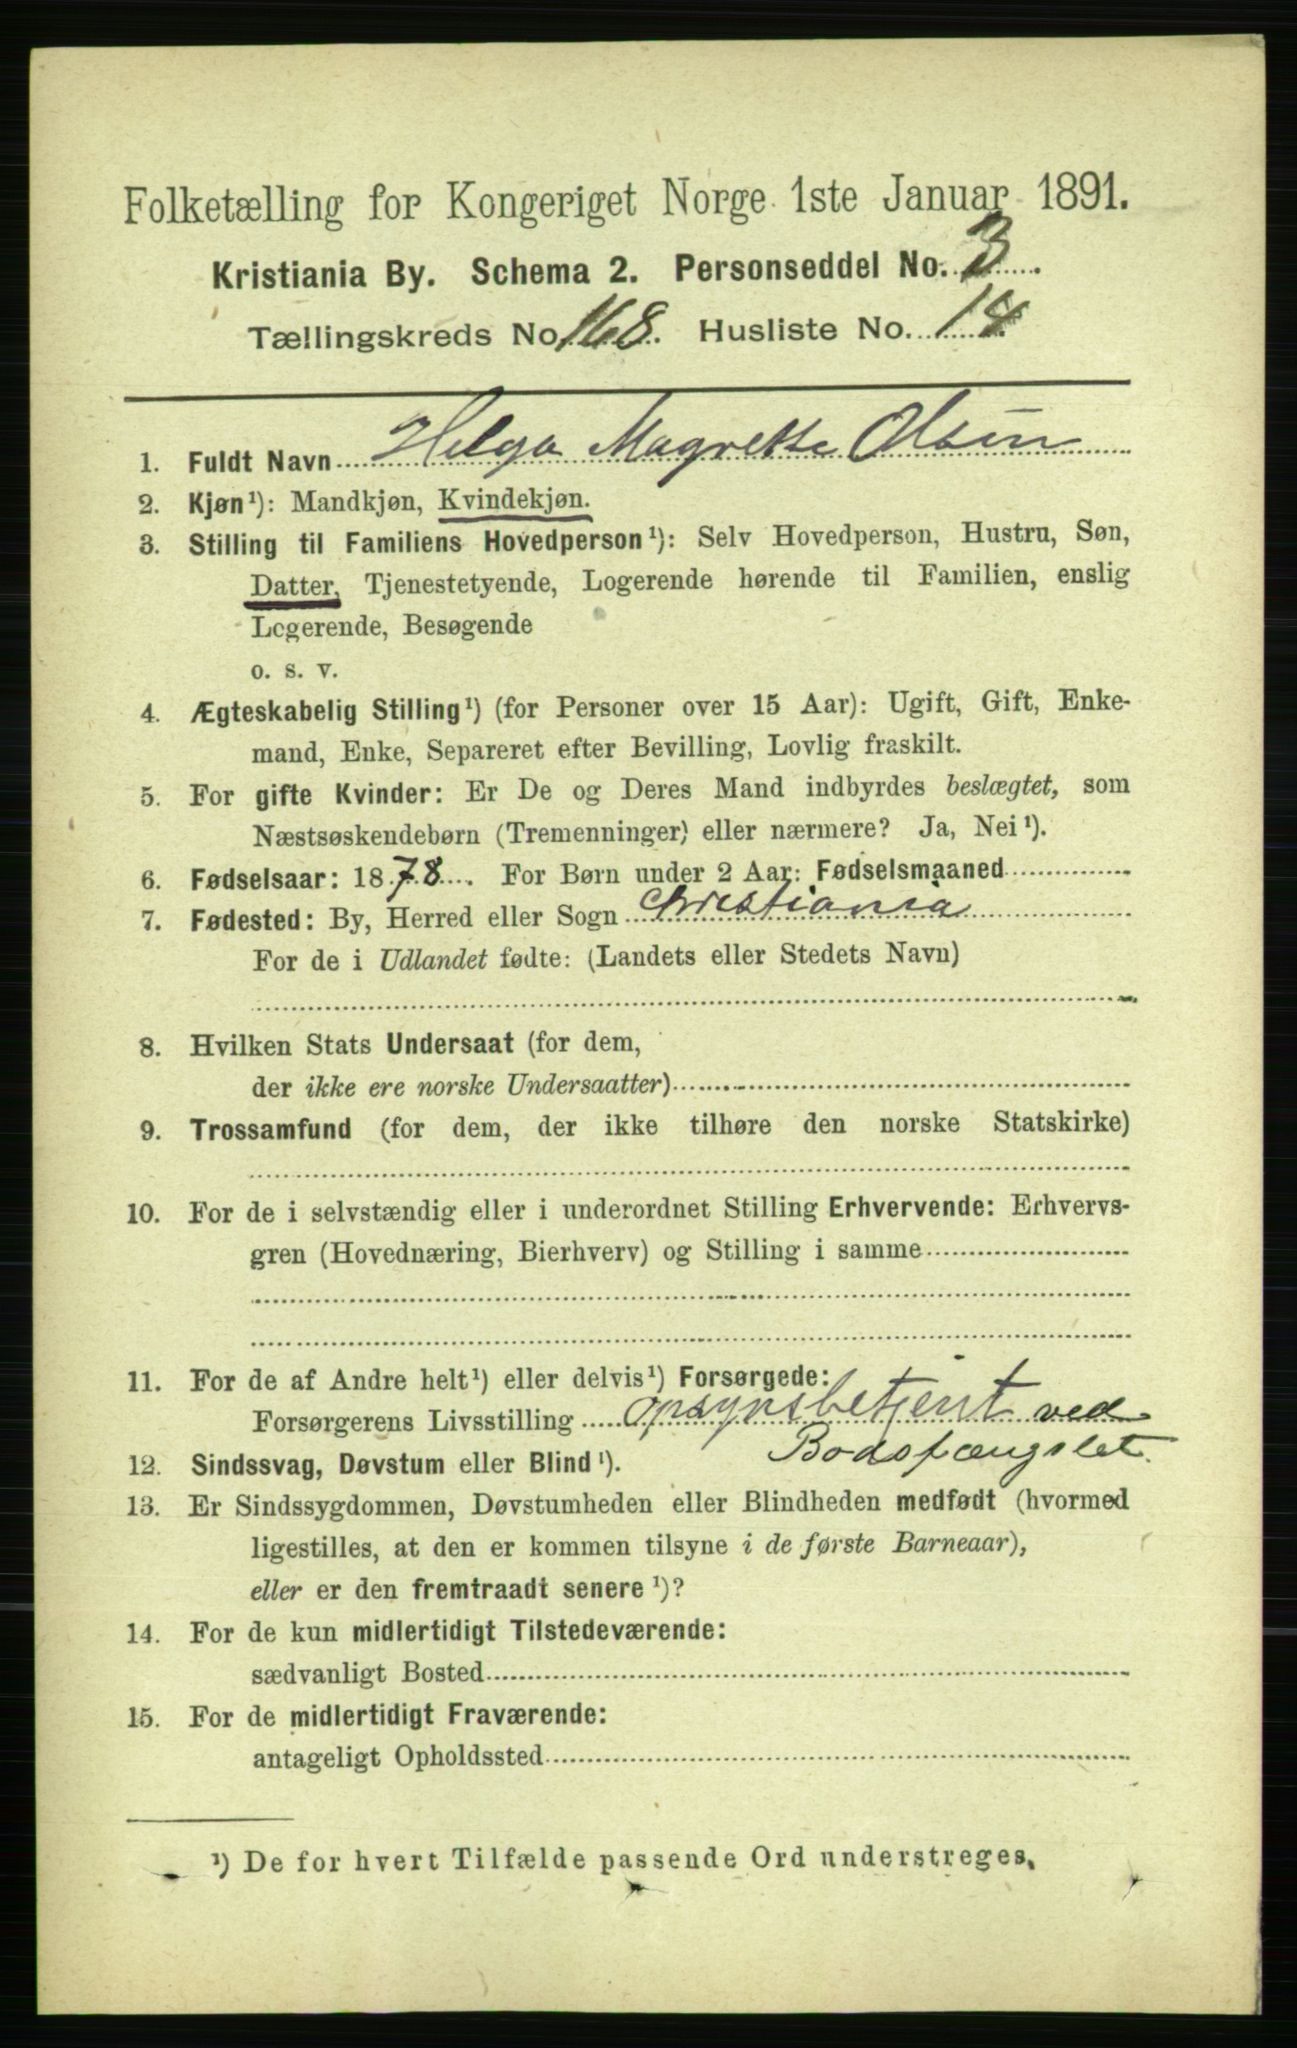 Folketælling for Kongeriget Norge 1ste Januar 1891.
Kristiania By. Schema 2. Personseddel No. 3.
Tællingskreds No. 168. Husliste No. 14.
1. Fuldt Navn Helga Magrette Olsen
2. Kjøn¹): Mandkjøn, Kvindekjøn.
3. Stilling til Familiens Hovedperson¹): Selv Hovedperson, Hustru, Søn,
Datter, Tjenestetyende, Logerende hørende til Familien, enslig
Logerende, Besøgende
o. s. v.
4. Ægteskabelig Stilling¹) (for Personer over 15 Aar): Ugift, Gift, Enke-
mand, Enke, Separeret efter Bevilling, Lovlig fraskilt.
5. For gifte Kvinder: Er De og Deres Mand indbyrdes beslægtet, som
Næstsøskendebørn (Tremenninger) eller nærmere? Ja, Nei¹).
6. Fødselsaar: 1878. For Børn under 2 Aar: Fødselsmaaned
7. Fødested: By, Herred eller Sogn Christiania
For de i Udlandet fødte: (Landets eller Stedets Navn)
8. Hvilken Stats Undersaat (for dem,
der ikke ere norske Undersaatter)
9. Trossamfund (for dem, der ikke tilhøre den norske Statskirke)
10. For de i selvstændig eller i underordnet Stilling Erhvervende: Erhvervs-
gren (Hovednæring, Bierhverv) og Stilling i samme
11. For de af Andre helt¹) eller delvis¹) Forsørgede:
Forsørgerens Livsstilling opsynsbetjent ved
Bodsfængslet.
12. Sindssvag, Døvstum eller Blind¹).
13. Er Sindssygdommen, Døvstumheden eller Blindheden medfødt (hvormed
ligestilles, at den er kommen tilsyne i de første Barneaar),
eller er den fremtraadt senere¹)?
14. For de kun midlertidigt Tilstedeværende:
sædvanligt Bosted
15. For de midlertidigt Fraværende:
antageligt Opholdssted
¹) De for hvert Tilfælde passende Ord understreges.